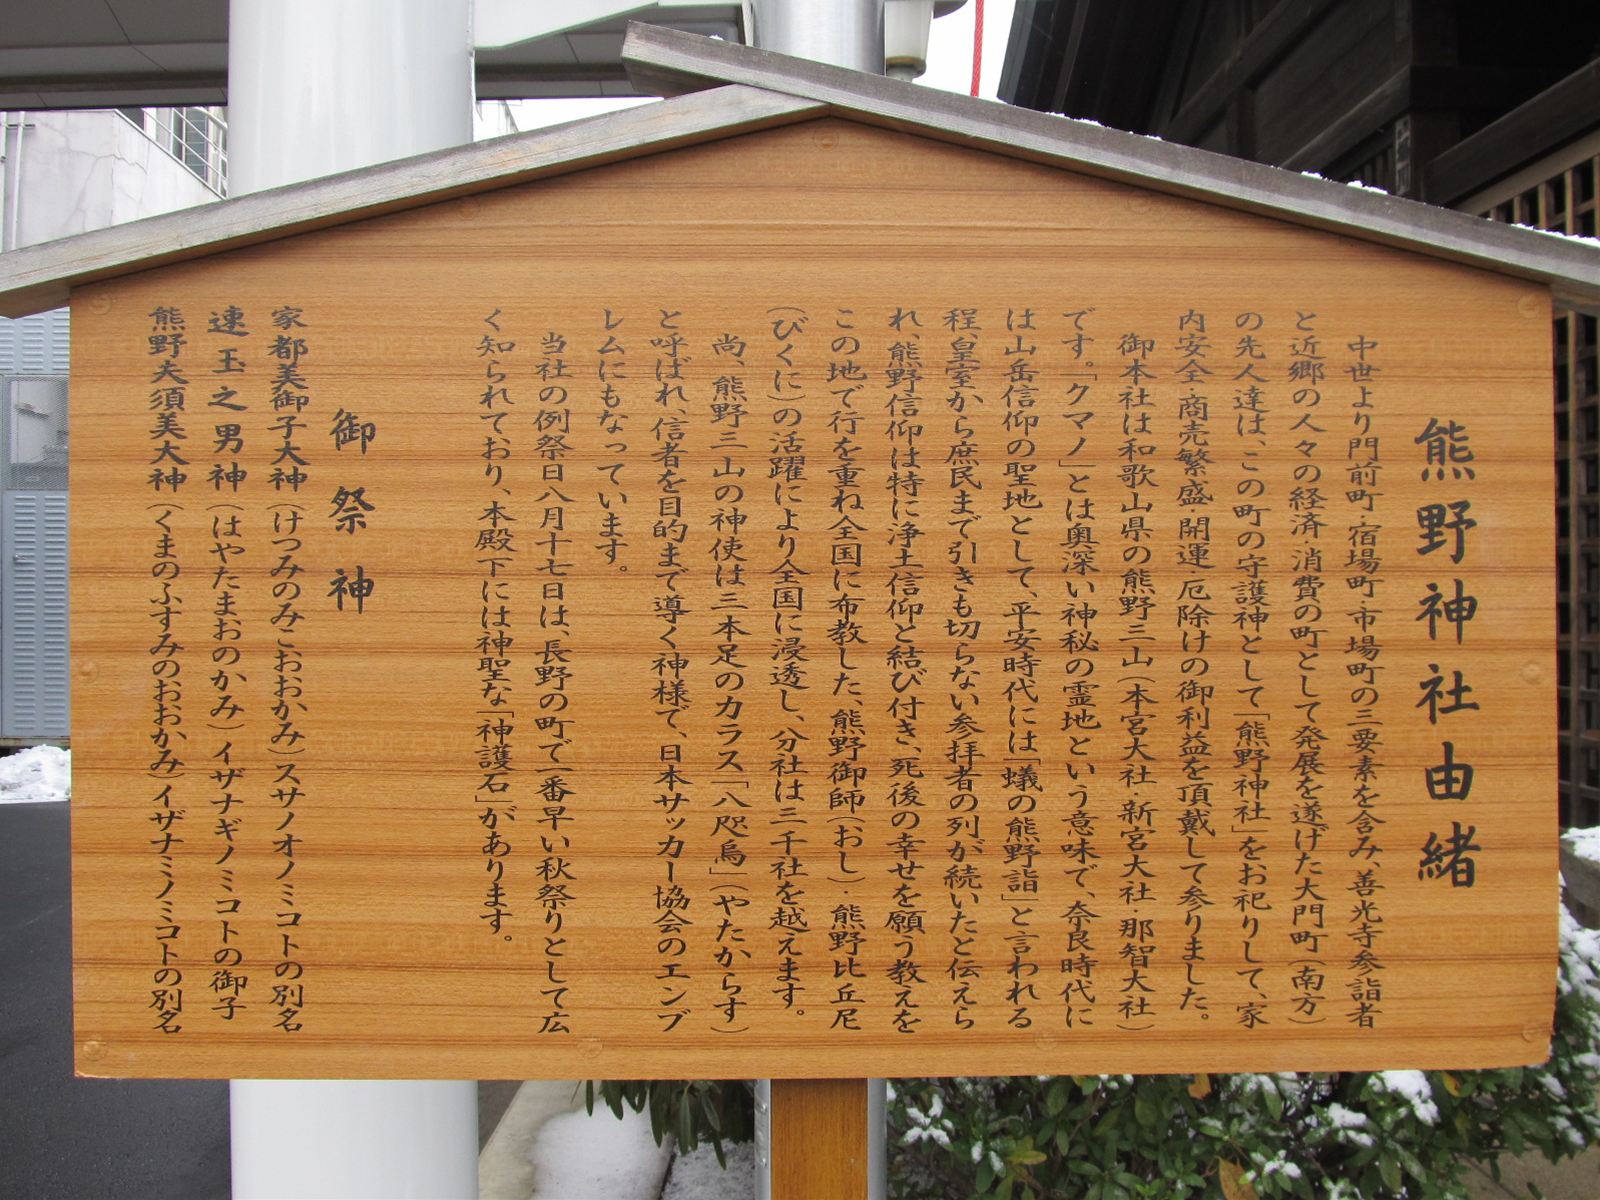 熊野神社由緒
中世より門前町・宿場町・市場町の三要素を含み、善光寺参詣者
と近郷の人々の経済・消費の町として発展を遂げた大門町(南方)
の先人達は、この町の守護神として「熊野神社」をお祀りして、家
内安全・商売繁盛・開運・厄除けの御利益を頂戴して参りました。
御本社は和歌山県の熊野三山(本宮大社・新宮大社・那智大社)
です。「クマノ」とは奥深い神秘の霊地という意味で、奈良時代に
は山岳信仰の聖地として、平安時代には「蟻の熊野詣」と言われる
程、皇室から庶民まで引きも切らない参拝者の列が続いたと伝えら
れ、熊野信仰は特に浄土信仰と結び付き、死後の幸せを願う教えを
この地で行を重ね全国に布教した、熊野御師(おし)・熊野比丘尼
(びくに)の活躍により全国に浸透し、分社は三千社を越えます。
尚、熊野三山の神使は三本足のカラス「八咫烏」(やたからす)
と呼ばれ、信者を目的まで導く神様で、日本サッカー協会のエンブ
レムにもなっています。
当社の例祭日八月十七日は、長野の町で一番早い秋祭りとして広
く知られており、本殿下には神聖な「神護石」があります。
御祭神
家都美御子大神(けつみのみこおおかみ)スサノオノミコトの別名
速玉之男神(はやたまおのかみ)イザナギノミコトの御子
熊野夫須美大神(くまのふすみのおおかみ)イザナミノミコトの別名